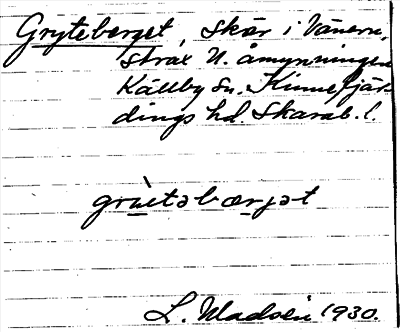 Gryteberget, skär i Vänern,
strax N. åmynningen
Källby sn. Kinnefjär-
dings hd. Skarab. l.
grùetabærjət
L. Madsén 1930.